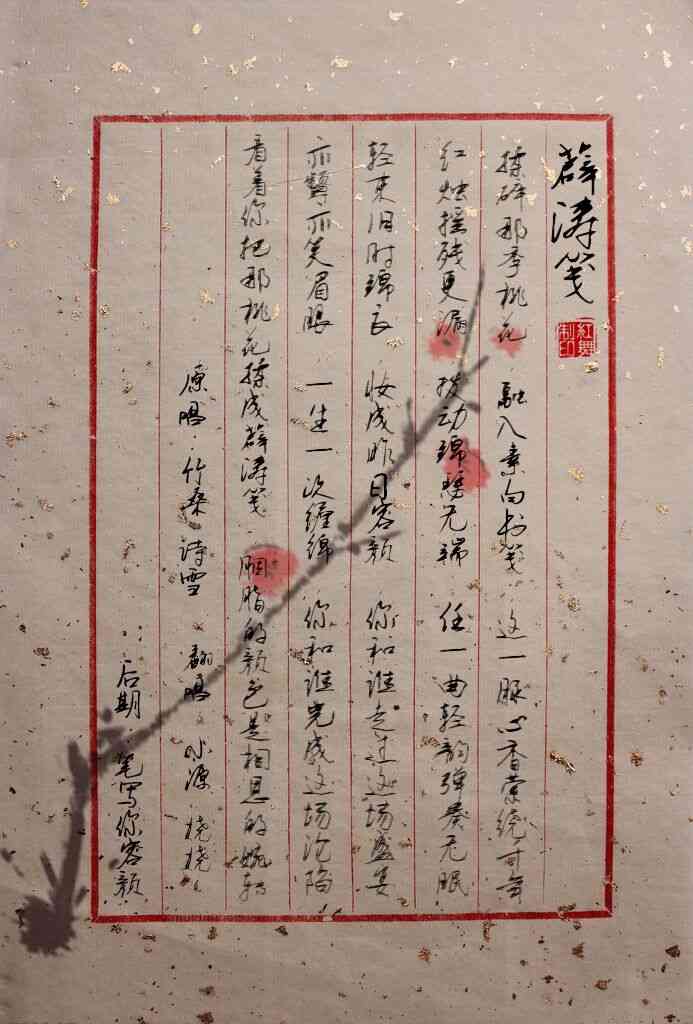 薛涛笺
红舞制印
揉碎那季桃花 融入素白书笺 这一脉心香萦绕千年
红烛摇残更漏 拨动锦瑟无端 任一曲轻韵弹奏无眠
轻束旧时锦衣 妆成昨日容颜 你和谁走过这场盛宴
亦颦亦笑眉眼 一生一次缠绵 你和谁完成这场沦陷
看着你把那桃花揉成薛涛笺 胭脂的颜色是相思的婉转
原唱：竹桑 诗雪 翻唱：水源 桡桡
后期：笔写你容颜